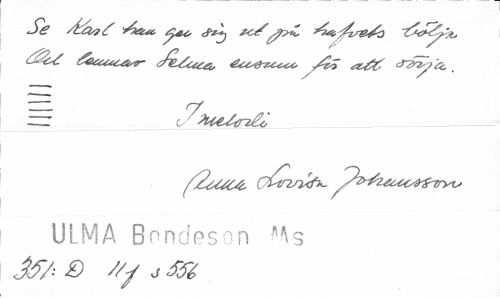 Se Karl han ger sig ut på hafvets bölja
Och lemnar Selma ensam för att sörja.
I melodi
Anna Lovisa Johansson
ULMA Bondeson Ms
351: D 11f s 556